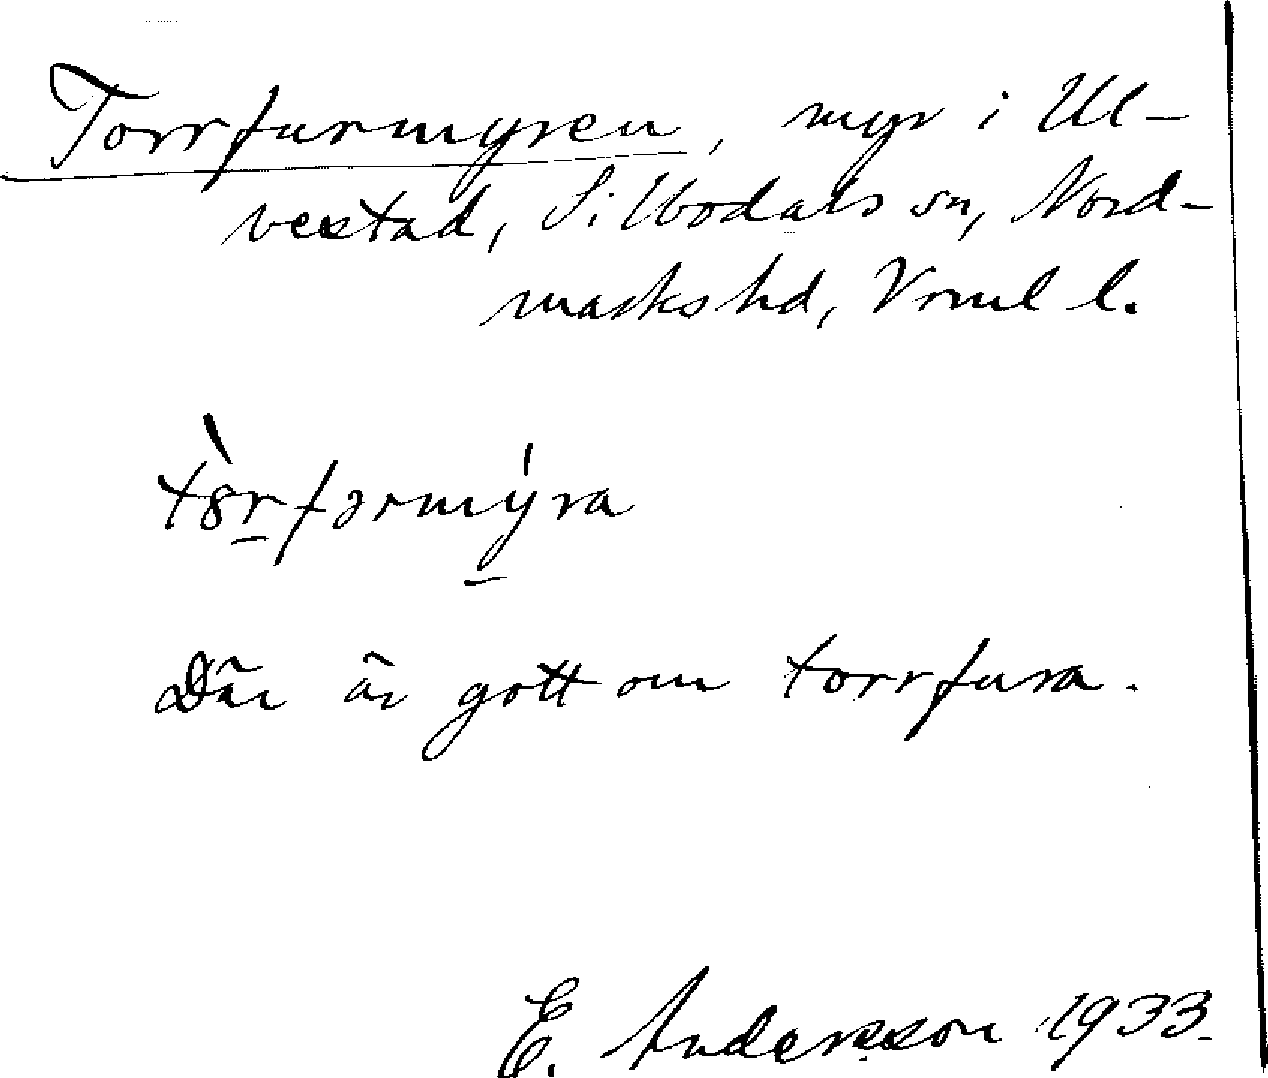 Torrfurmyren, myr i Ul-
vestad, Silbodals sn, Nord-
marks hd, Vrml l.
tȍrfərmýra
Där är gott om torrfura.
E. Andersson 1933.